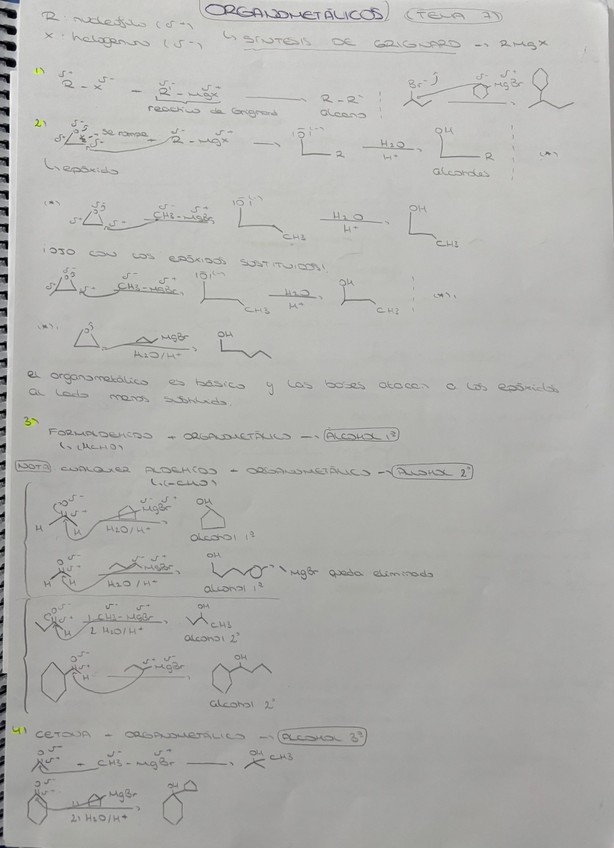 ORGANOMETÁLICOS (TEMA 7)
R: nucleófilo (δ-)
X: halógeno (δ-) ↳ SÍNTESIS DE GRIGNARD → RMgX
1)
δ+ δ- δ- δ+
R - X - R - MgX → R - R
reactivo de Grignard alcano
Br δ- δ+ MgBr
2)
se rompe δ- δ+ R - MgX → |Ō|(-) R H2O H+ OH R
↳ epóxido alcoholes
δ+ CH3-MgBr |Ō|(-) CH3 H2O H+ OH CH3
¡OJO CON LOS EPÓXIDOS SUSTITUIDOS!
δ+ CH3-MgBr |Ō|(-) CH3 H2O H+ OH CH3
MgBr H2O/H+ OH
el organometálico es básico y las bases atacan a los epóxidos
al lado menos sustituido.
3)
FORMALDEHÍDO + ORGANOMETÁLICO → ALCOHOL 1º
↳ HCHO
NOTA CUALQUIER ALDEHÍDO + ORGANOMETÁLICO → ALCOHOL 2º
↳ (-CHO)
O δ- δ+ H H δ- δ+ MgBr H2O/H+ OH
alcohol 1º
O δ- H H MgBr H2O/H+ OH MgBr queda eliminado
alcohol 1º
O δ- H 1. CH3-MgBr 2. H2O/H+ OH CH3
alcohol 2º
O δ- H δ- δ+ MgBr OH
alcohol 2º
4) CETONA + ORGANOMETÁLICO → ALCOHOL 3º
O δ- + CH3 - MgBr → OH CH3
O δ- 1) MgBr 2) H2O/H+ OH